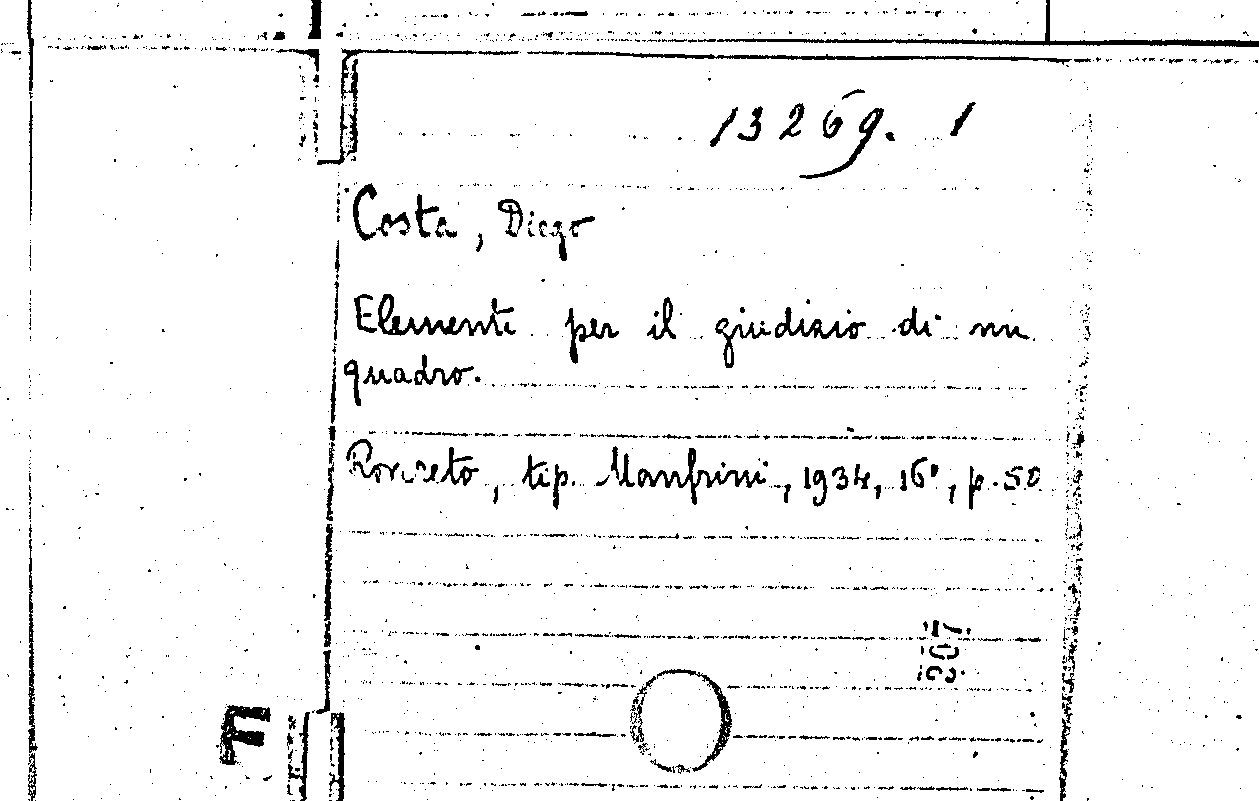 13269. 1
Costa, Diego
Elementi per il giudizio di un
quadro.
Rovereto, tip. Manfrini, 1934, 16°, p. 50
207
F